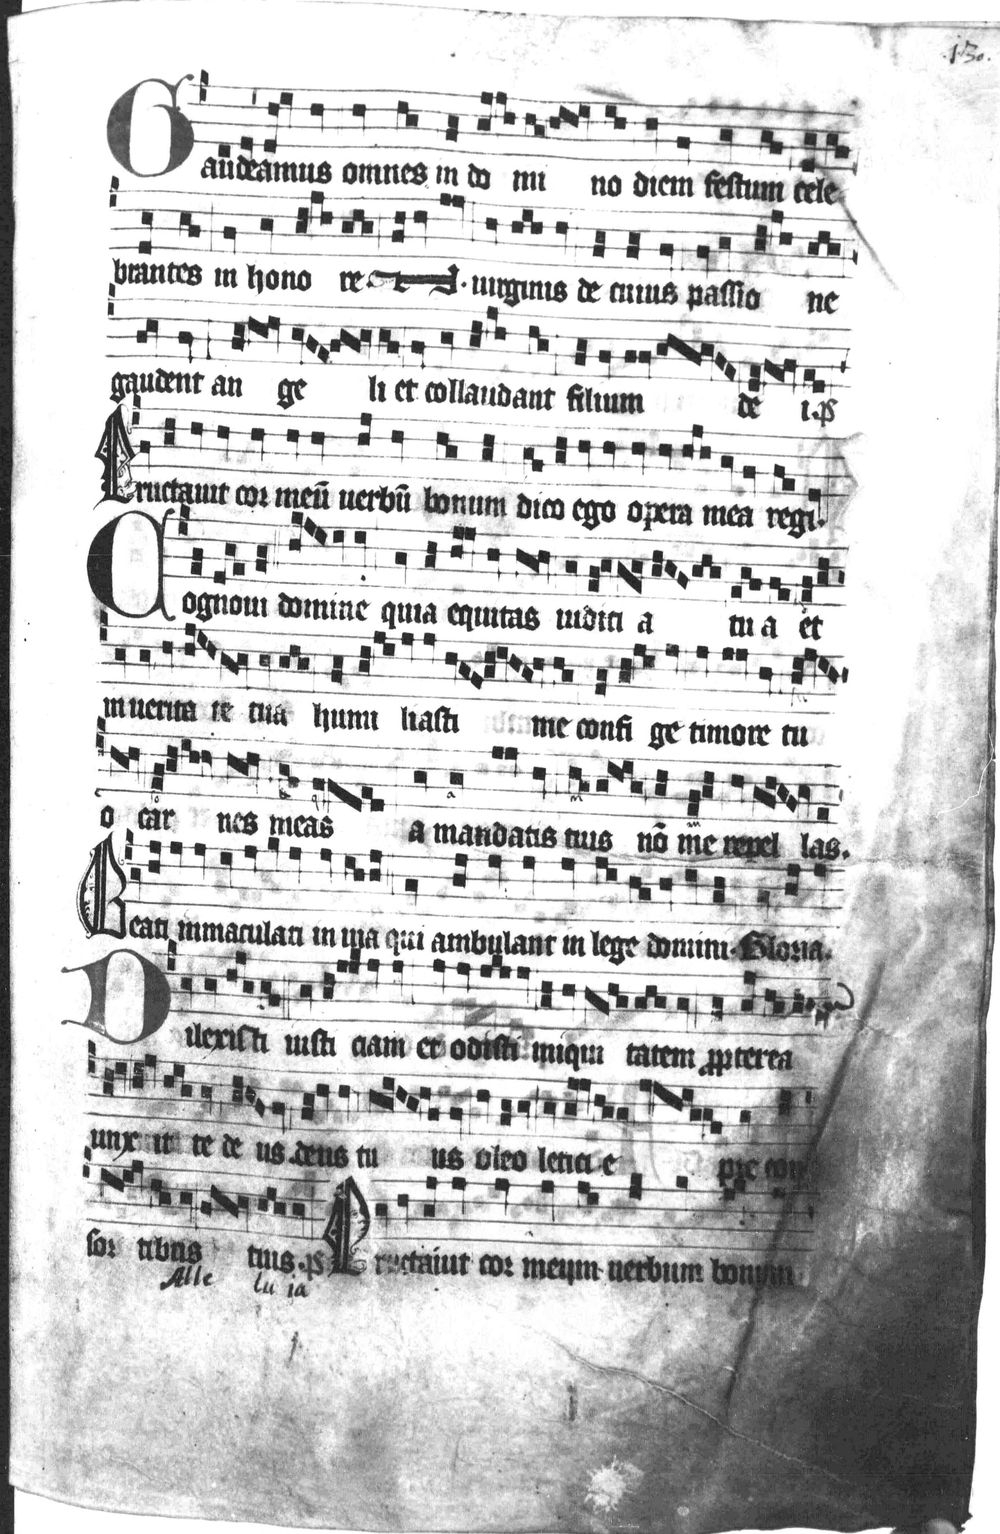 .130.
Gaudeamus omnes in do mi no diem festum cele
brantes in hono re .N. uirginis de cuius passio ne
gaudent an ge li et collaudant filium de i. ps
Eructauit cor meū uerbū bonum dico ego opera mea regi.
Cognoui domine quia equitas iudici a tu a et
in uerita te tua humi liasti me confi ge timore tu
o car nes meas a mandatis tuis nō me repel las.
Beati inmaculati in uia qui ambulant in lege domini. Gloria.
Dilexisti iusti ciam et odisti iniqui tatem propterea
unx it te de us deus tu us oleo leticie pre con
sor tibus tuis. ps Eructauit cor meum uerbum bonum
Alle lu ia